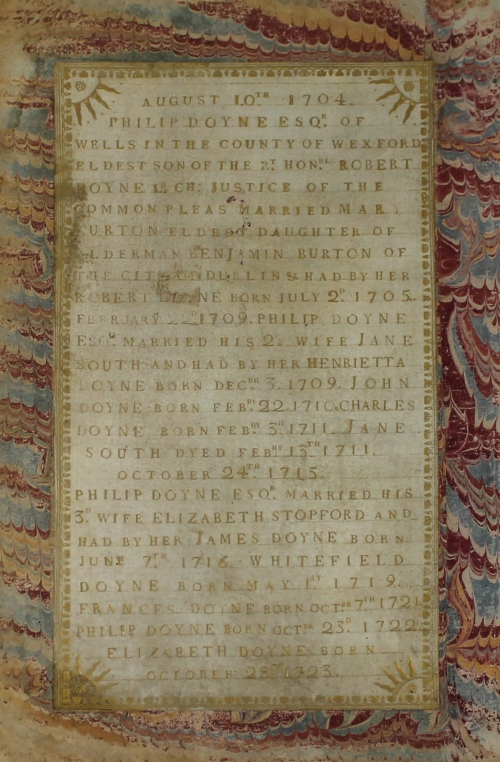 AUGUST 10TH 1704.
PHILIP DOYNE ESQR. OF
WELLS IN THE COUNTY OF WEXFORD
ELDEST SON OF THE RT HONBL ROBERT
DOYNE LD CHF JUSTICE OF THE
COMMON PLEAS MARRIED MARY
BURTON ELDEST DAUGHTER OF
ALDERMAN BENJAMIN BURTON OF
THE CITY OF DUBLIN & HAD BY HER
ROBERT DOYNE BORN JULY 2D. 1705.
FEBRUARY 22D 1709. PHILIP DOYNE
ESQR. MARRIED HIS 2D. WIFE JANE
SOUTH AND HAD BY HER HENRIETTA
DOYNE BORN DECBR 3. 1709. JOHN
DOYNE BORN FEBRY 22. 1710. CHARLES
DOYNE BORN FEBRY 3D 1711. JANE
SOUTH DYED FEBRY 13TH 1711.
OCTOBER 24TH 1715.
PHILIP DOYNE ESQR. MARRIED HIS
3D WIFE ELIZABETH STOPFORD AND
HAD BY HER JAMES DOYNE BORN
JUNE 7TH 1716. WHITEFIELD
DOYNE BORN MAY 1ST 1719.
FRANCES DOYNE BORN OCTBR 7TH 1721
PHILIP DOYNE BORN OCTBR 23D. 1722.
ELIZABETH DOYNE BORN
OCTOBER 28TH 1723.